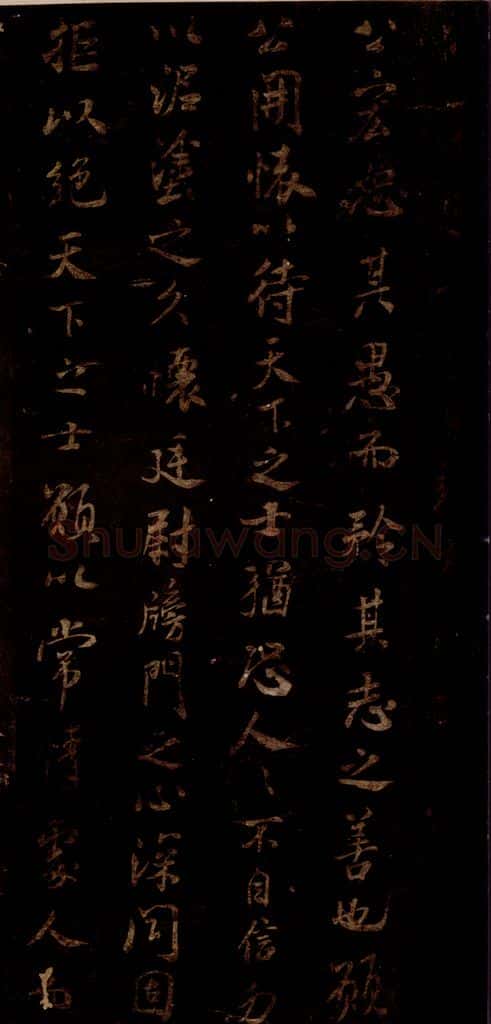 公宏恕其愚而矜其志之善也願
公開懷以待天下之士猶恐人人不自信勿
以泥塗之久懷廷尉牓門之心深閉固
拒以絕天下之士願以常情處人而
Shufawang.CN